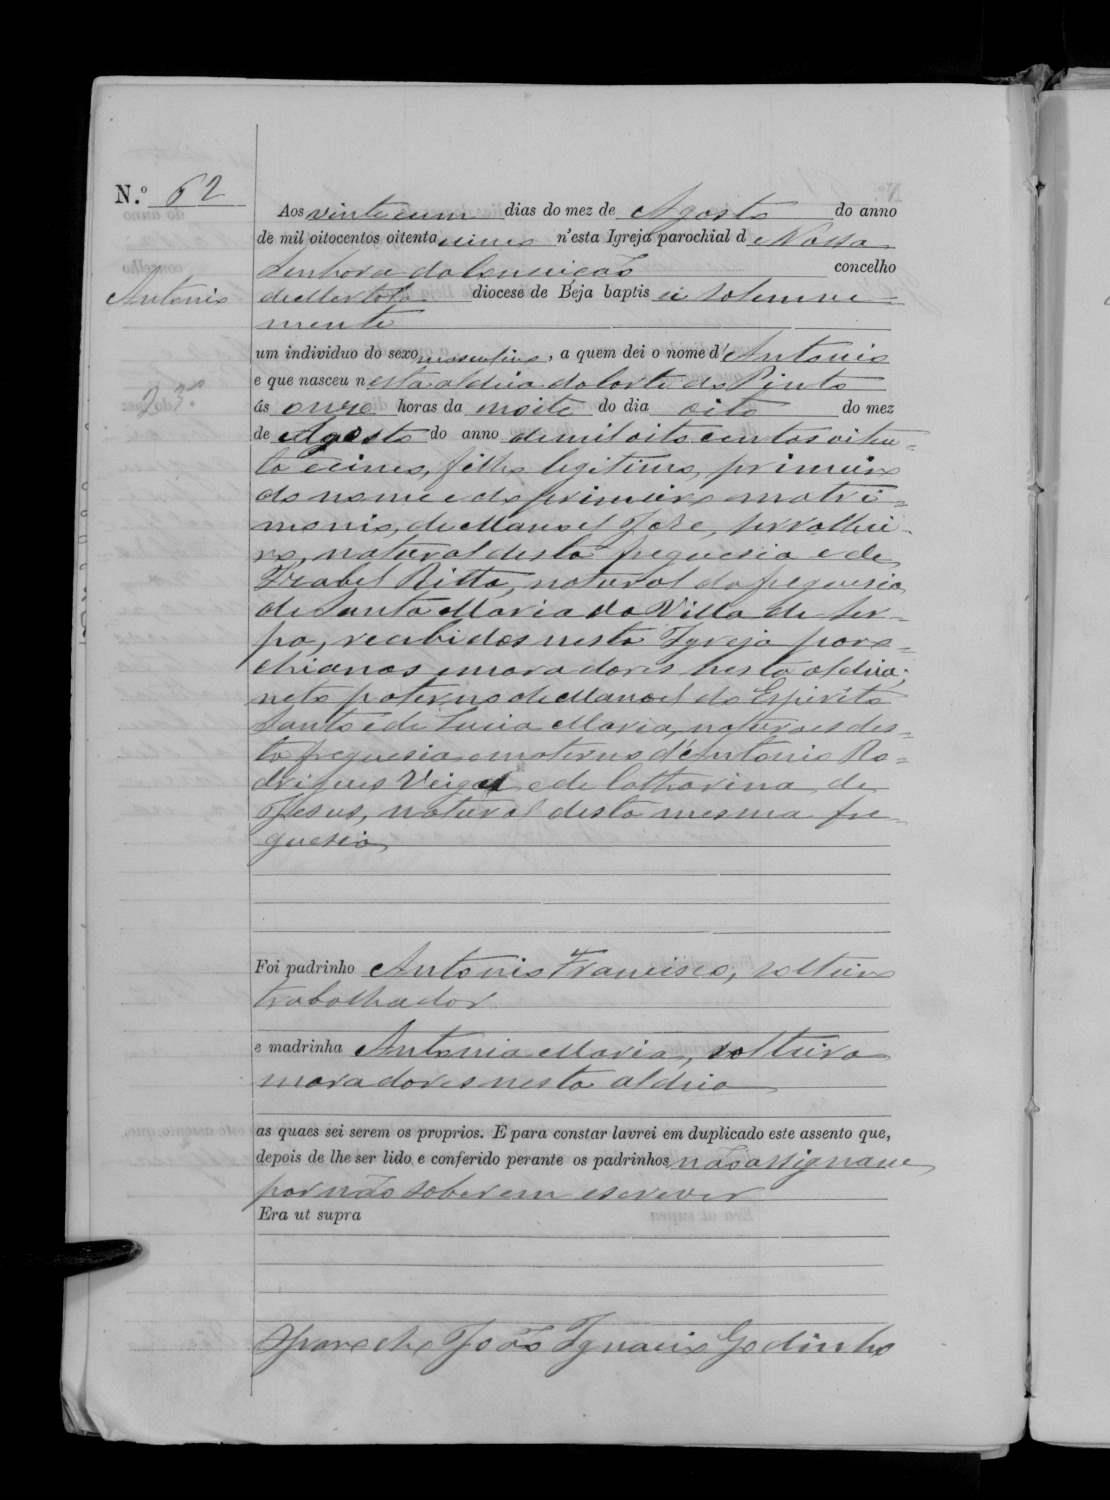 N.º 62
Aos vinte e um dias do mez de Agosto do anno
de mil oitocentos oitenta e cinco n'esta Igreja parochial d Nossa
Senhora da Conceição concelho
Antonio
de Mertola diocese de Beja baptis ei solemne
mente
um individuo do sexo masculino, a quem dei o nome d' Antonio
e que nasceu n esta aldeia da Corte do Pinto
ás onze horas da noite do dia oito do mez
de Agosto do anno de mil oito centos oiten-
ta e cinco, filho legitimo, primeiro
do nome e do primeiro matri=
monio, de Manoel José,
natural desta freguesia e de
Izabel Ritta, natural da freguesia
de Santa Maria da Villa de Ser-
pa, recebidos nesta Igreja paro=
chianos e moradores nesta aldeia;
neto paterno de Manoel do Espirito
Santo e de Lucia Maria, naturaes des=
ta freguesia e materno d'Antonio Ro=
drigues Veiga e de Catharina de
Jesus, natural desta mesma fre=
guesia,
Foi padrinho Antonio Francisco, solteiro
trabalhador
e madrinha Antonia Maria, solteira
moradores nesta aldeia
as quaes sei serem os proprios. E para constar lavrei em duplicado este assento que,
depois de lhe ser lido e conferido perante os padrinhos não assignam
por não saberem escrever
Era ut supra
O Parocho João Ignacio Godinho